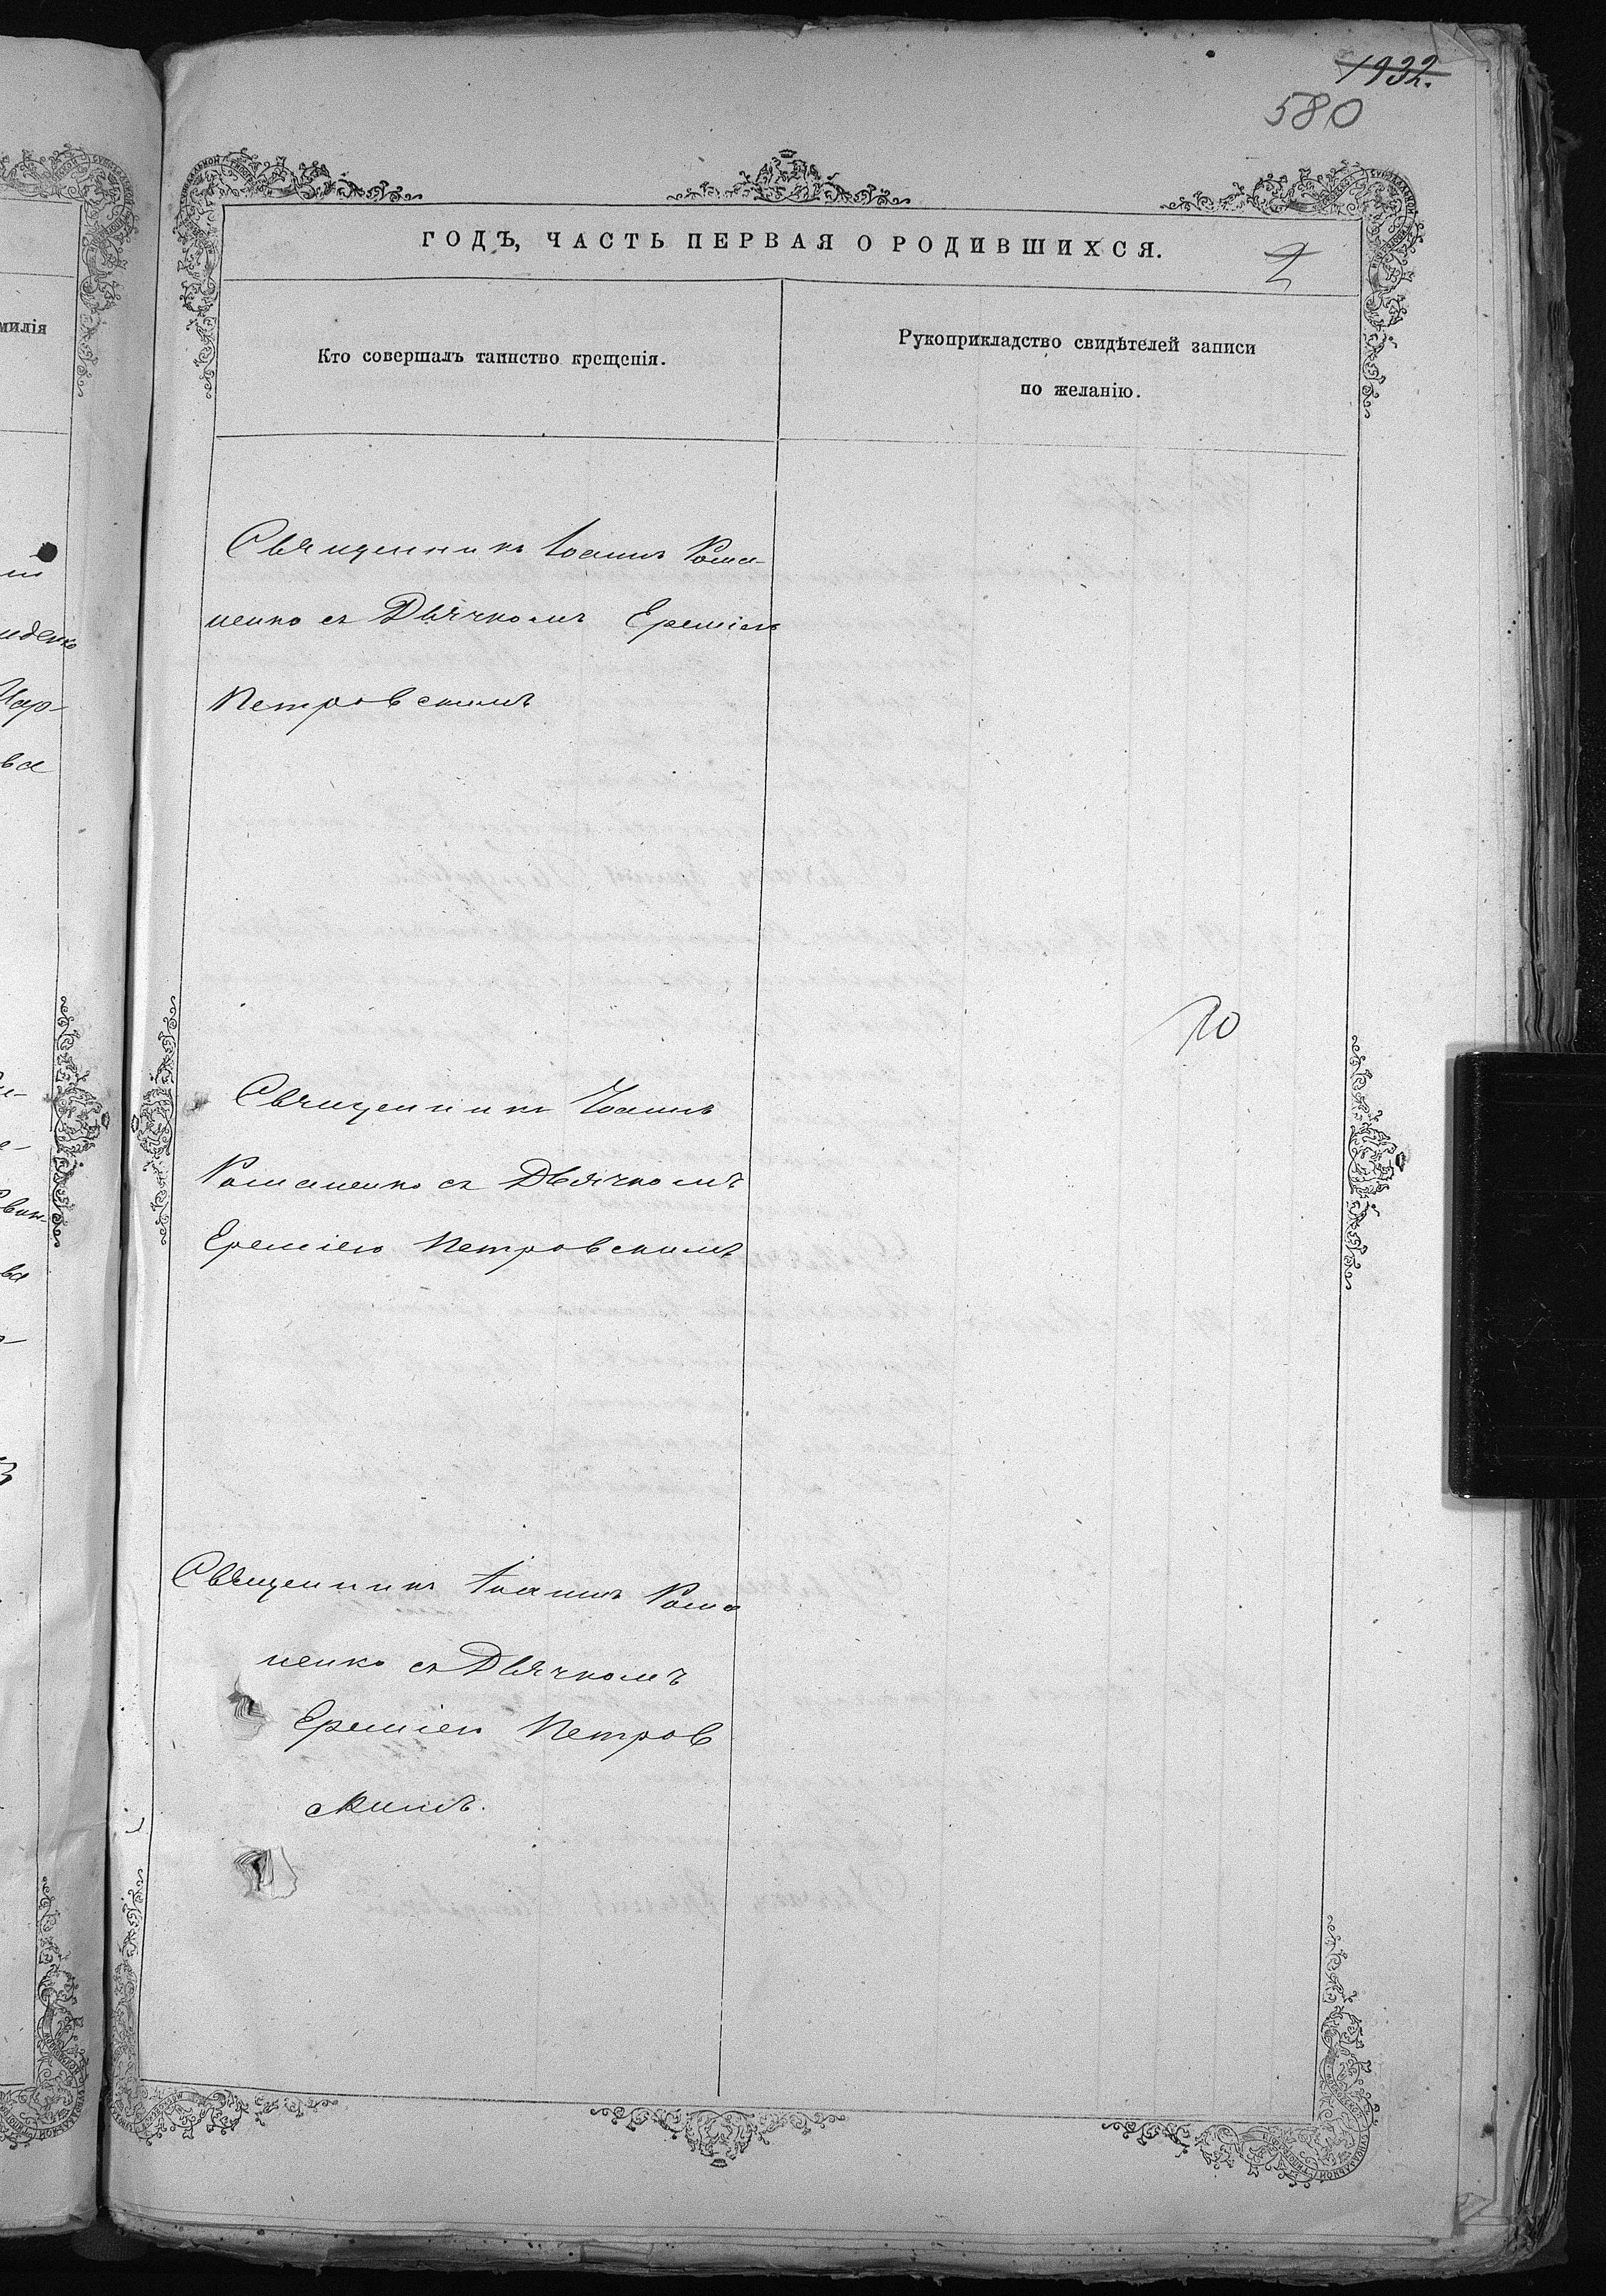 1932.
580
ГОДЪ, ЧАСТЬ ПЕРВАЯ О РОДИВШИХСЯ.
2
милія
Кто совершалъ таинство крещенія.
Рукоприкладство свидѣтелей записи
по желанію.
Священникъ Іоаннъ Рома-
ненко съ Дьячкомъ Ереміею
Петровскимъ
Священникъ Іоаннъ
Романенко съ Дьячкомъ
Ереміею Петровскимъ
Священникъ Іоаннъ Рома
ненко съ Дьячкомъ
Ереміею Петров
скимъ.